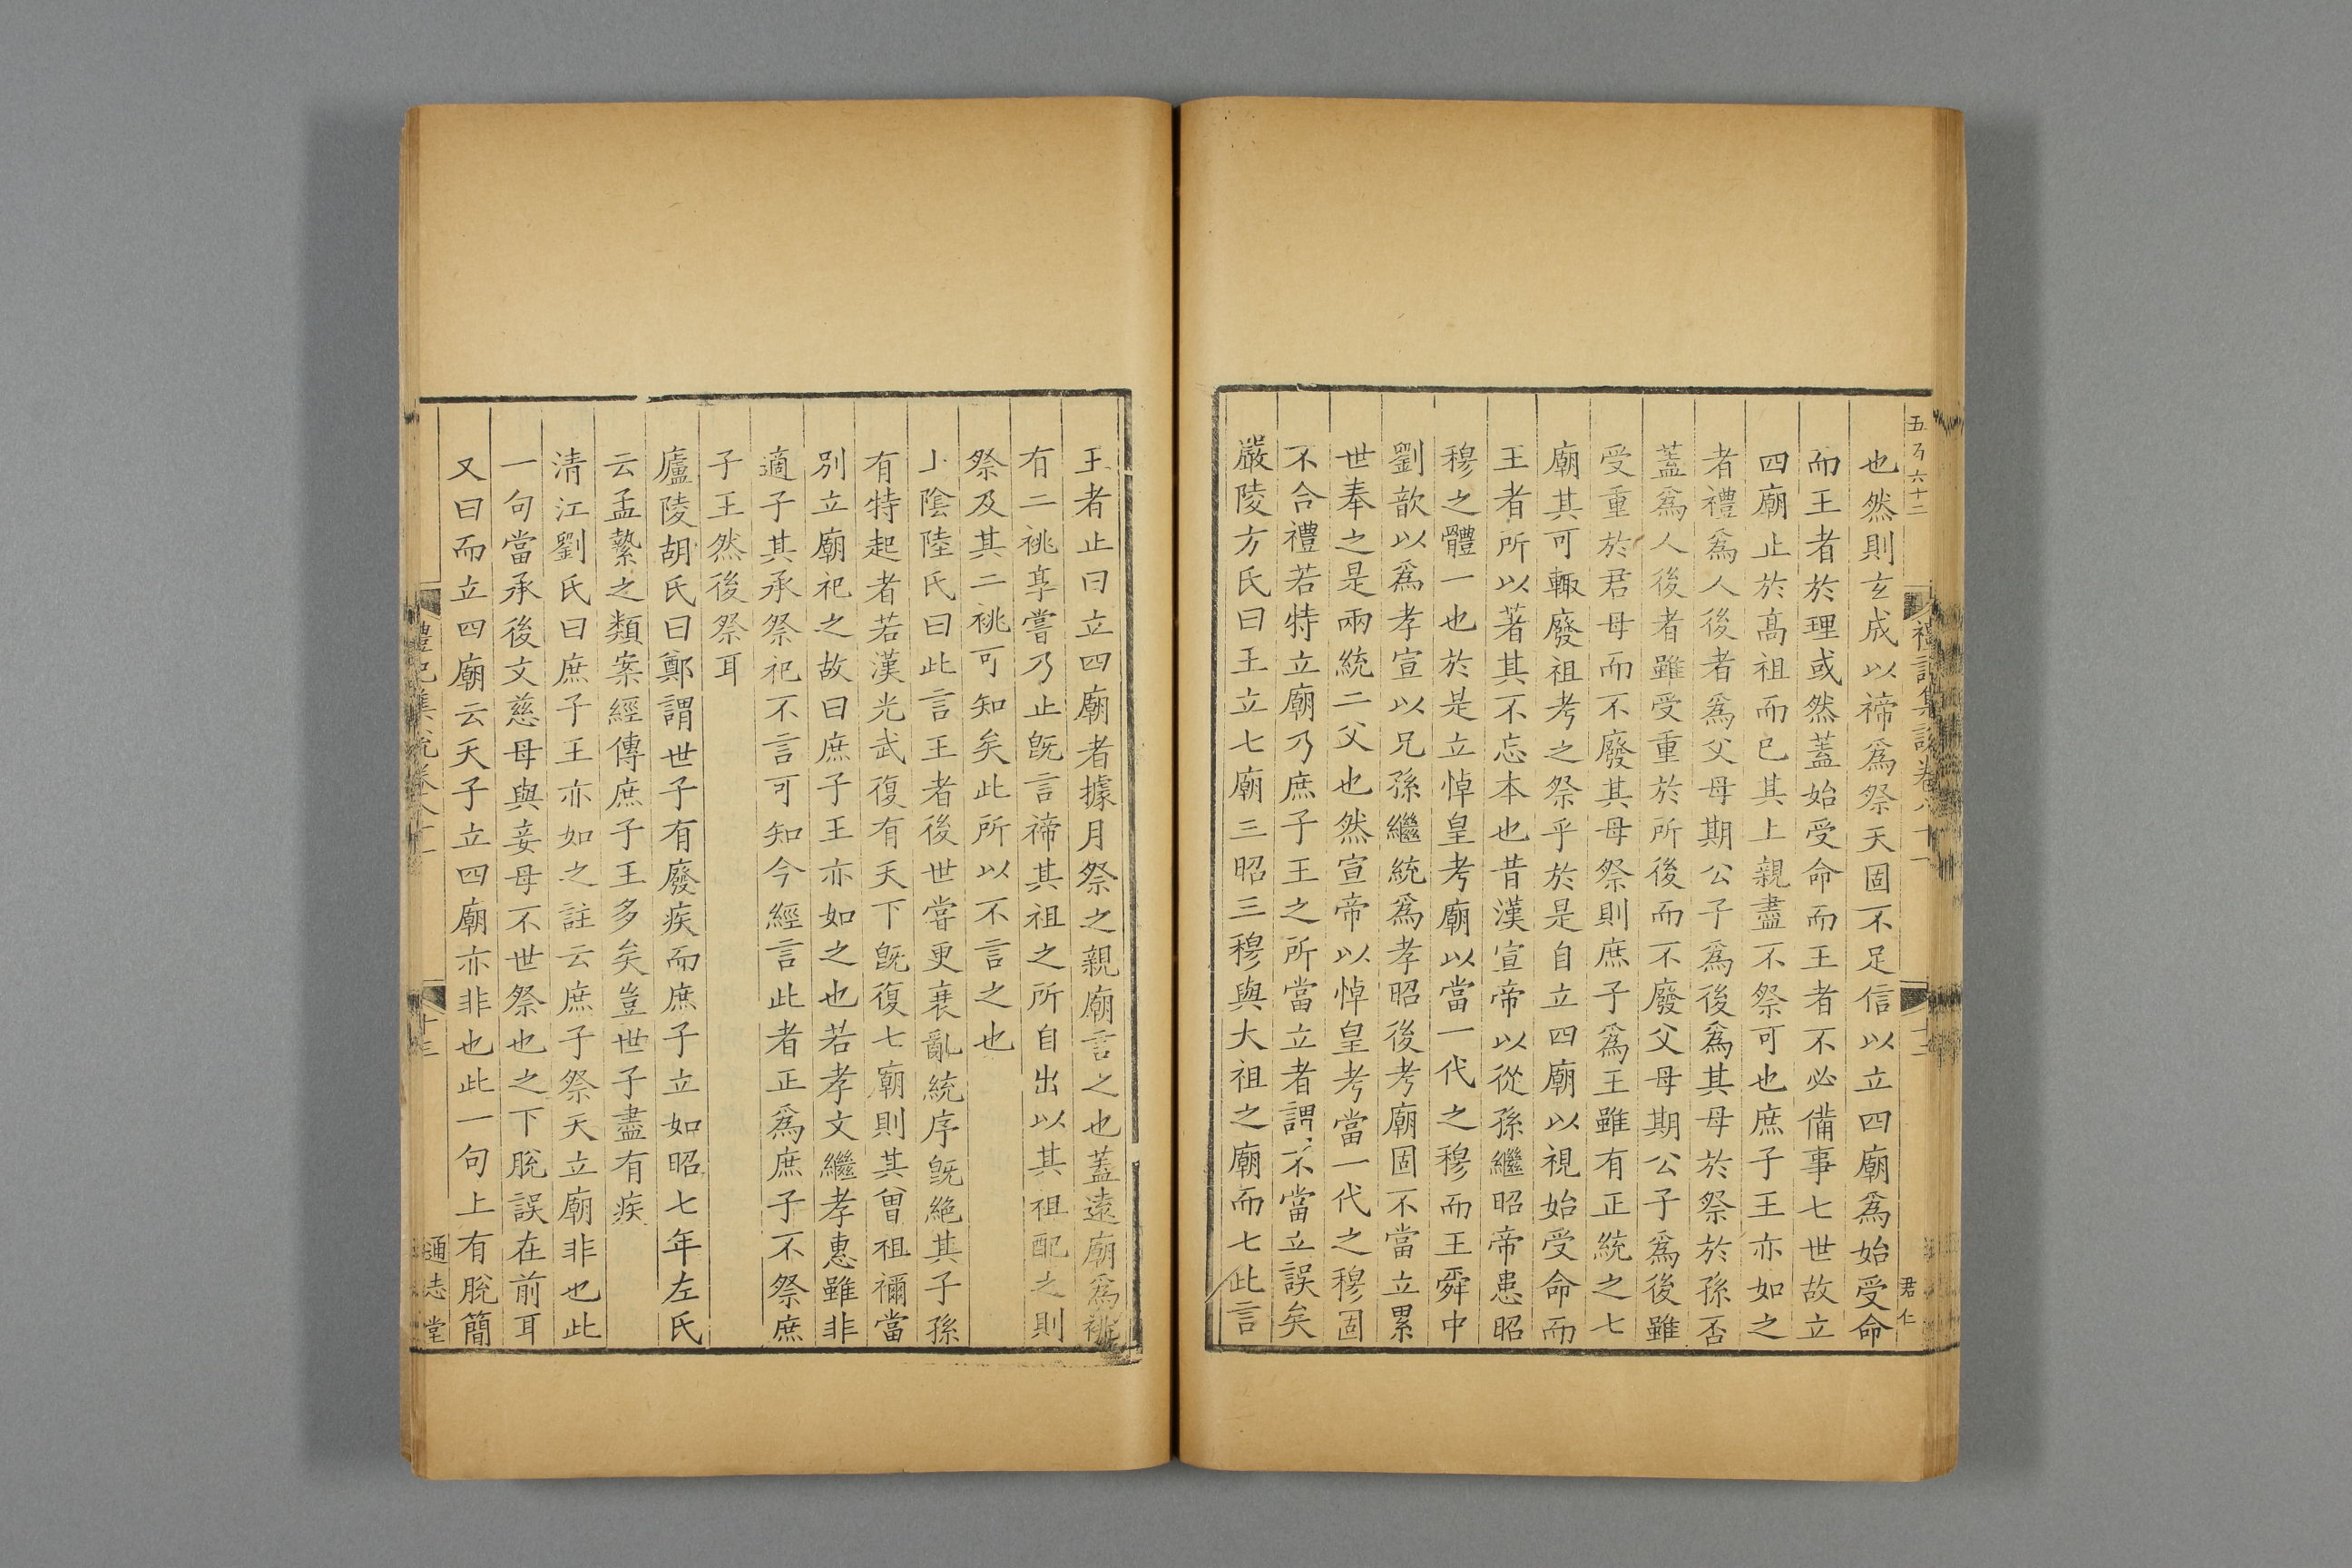 五乃六十二
禮記集說卷八十一
十二
君仁
也然則玄成以禘爲祭天固不足信以立四廟爲始受命
而王者於理或然蓋始受命而王者不必備事七世故立
四廟止於高祖而已其上親盡不祭可也庶子王亦如之
者禮爲人後者爲父母期公子爲後爲其母於祭於孫否
蓋爲人後者雖受重於所後而不廢父母期公子爲後雖
受重於君母而不廢其母祭則庶子爲王雖有正統之七
廟其可輒廢祖考之祭乎於是自立四廟以視始受命而
王者所以著其不忘本也昔漢宣帝以從孫繼昭帝患昭
穆之體一也於是立悼皇考廟以當一代之穆而王舜中
劉歆以爲孝宣以兄孫繼統爲孝昭後考廟固不當立累
世奉之是兩統二父也然宣帝以悼皇考當一代之穆固
不合禮若特立廟乃庶子王之所當立者謂不當立誤矣
嚴陵方氏曰王立七廟三昭三穆與大祖之廟而七此言
王者止曰立四廟者據月祭之親廟言之也蓋遠廟爲祧
有二祧享嘗乃止旣言禘其祖之所自出以其祖配之則
祭及其二祧可知矣此所以不言之也
山陰陸氏曰此言王者後世甞更衰亂統序旣絶其子孫
有特起者若漢光武復有天下旣復七廟則其曾祖禰當
別立廟祀之故曰庶子王亦如之也若孝文繼孝惠雖非
適子其承祭祀不言可知今經言此者正爲庶子不祭庶
子王然後祭耳
廬陵胡氏曰鄭謂世子有廢疾而庶子立如昭七年左氏
云孟縶之類案經傳庶子王多矣豈世子盡有疾
清江劉氏曰庶子王亦如之註云庶子祭天立廟非也此
一句當承後文慈母與妾母不世祭也之下脫誤在前耳
又曰而立四廟云天子立四廟亦非也此一句上有脫簡
禮記集說卷八十一
十三
通志堂